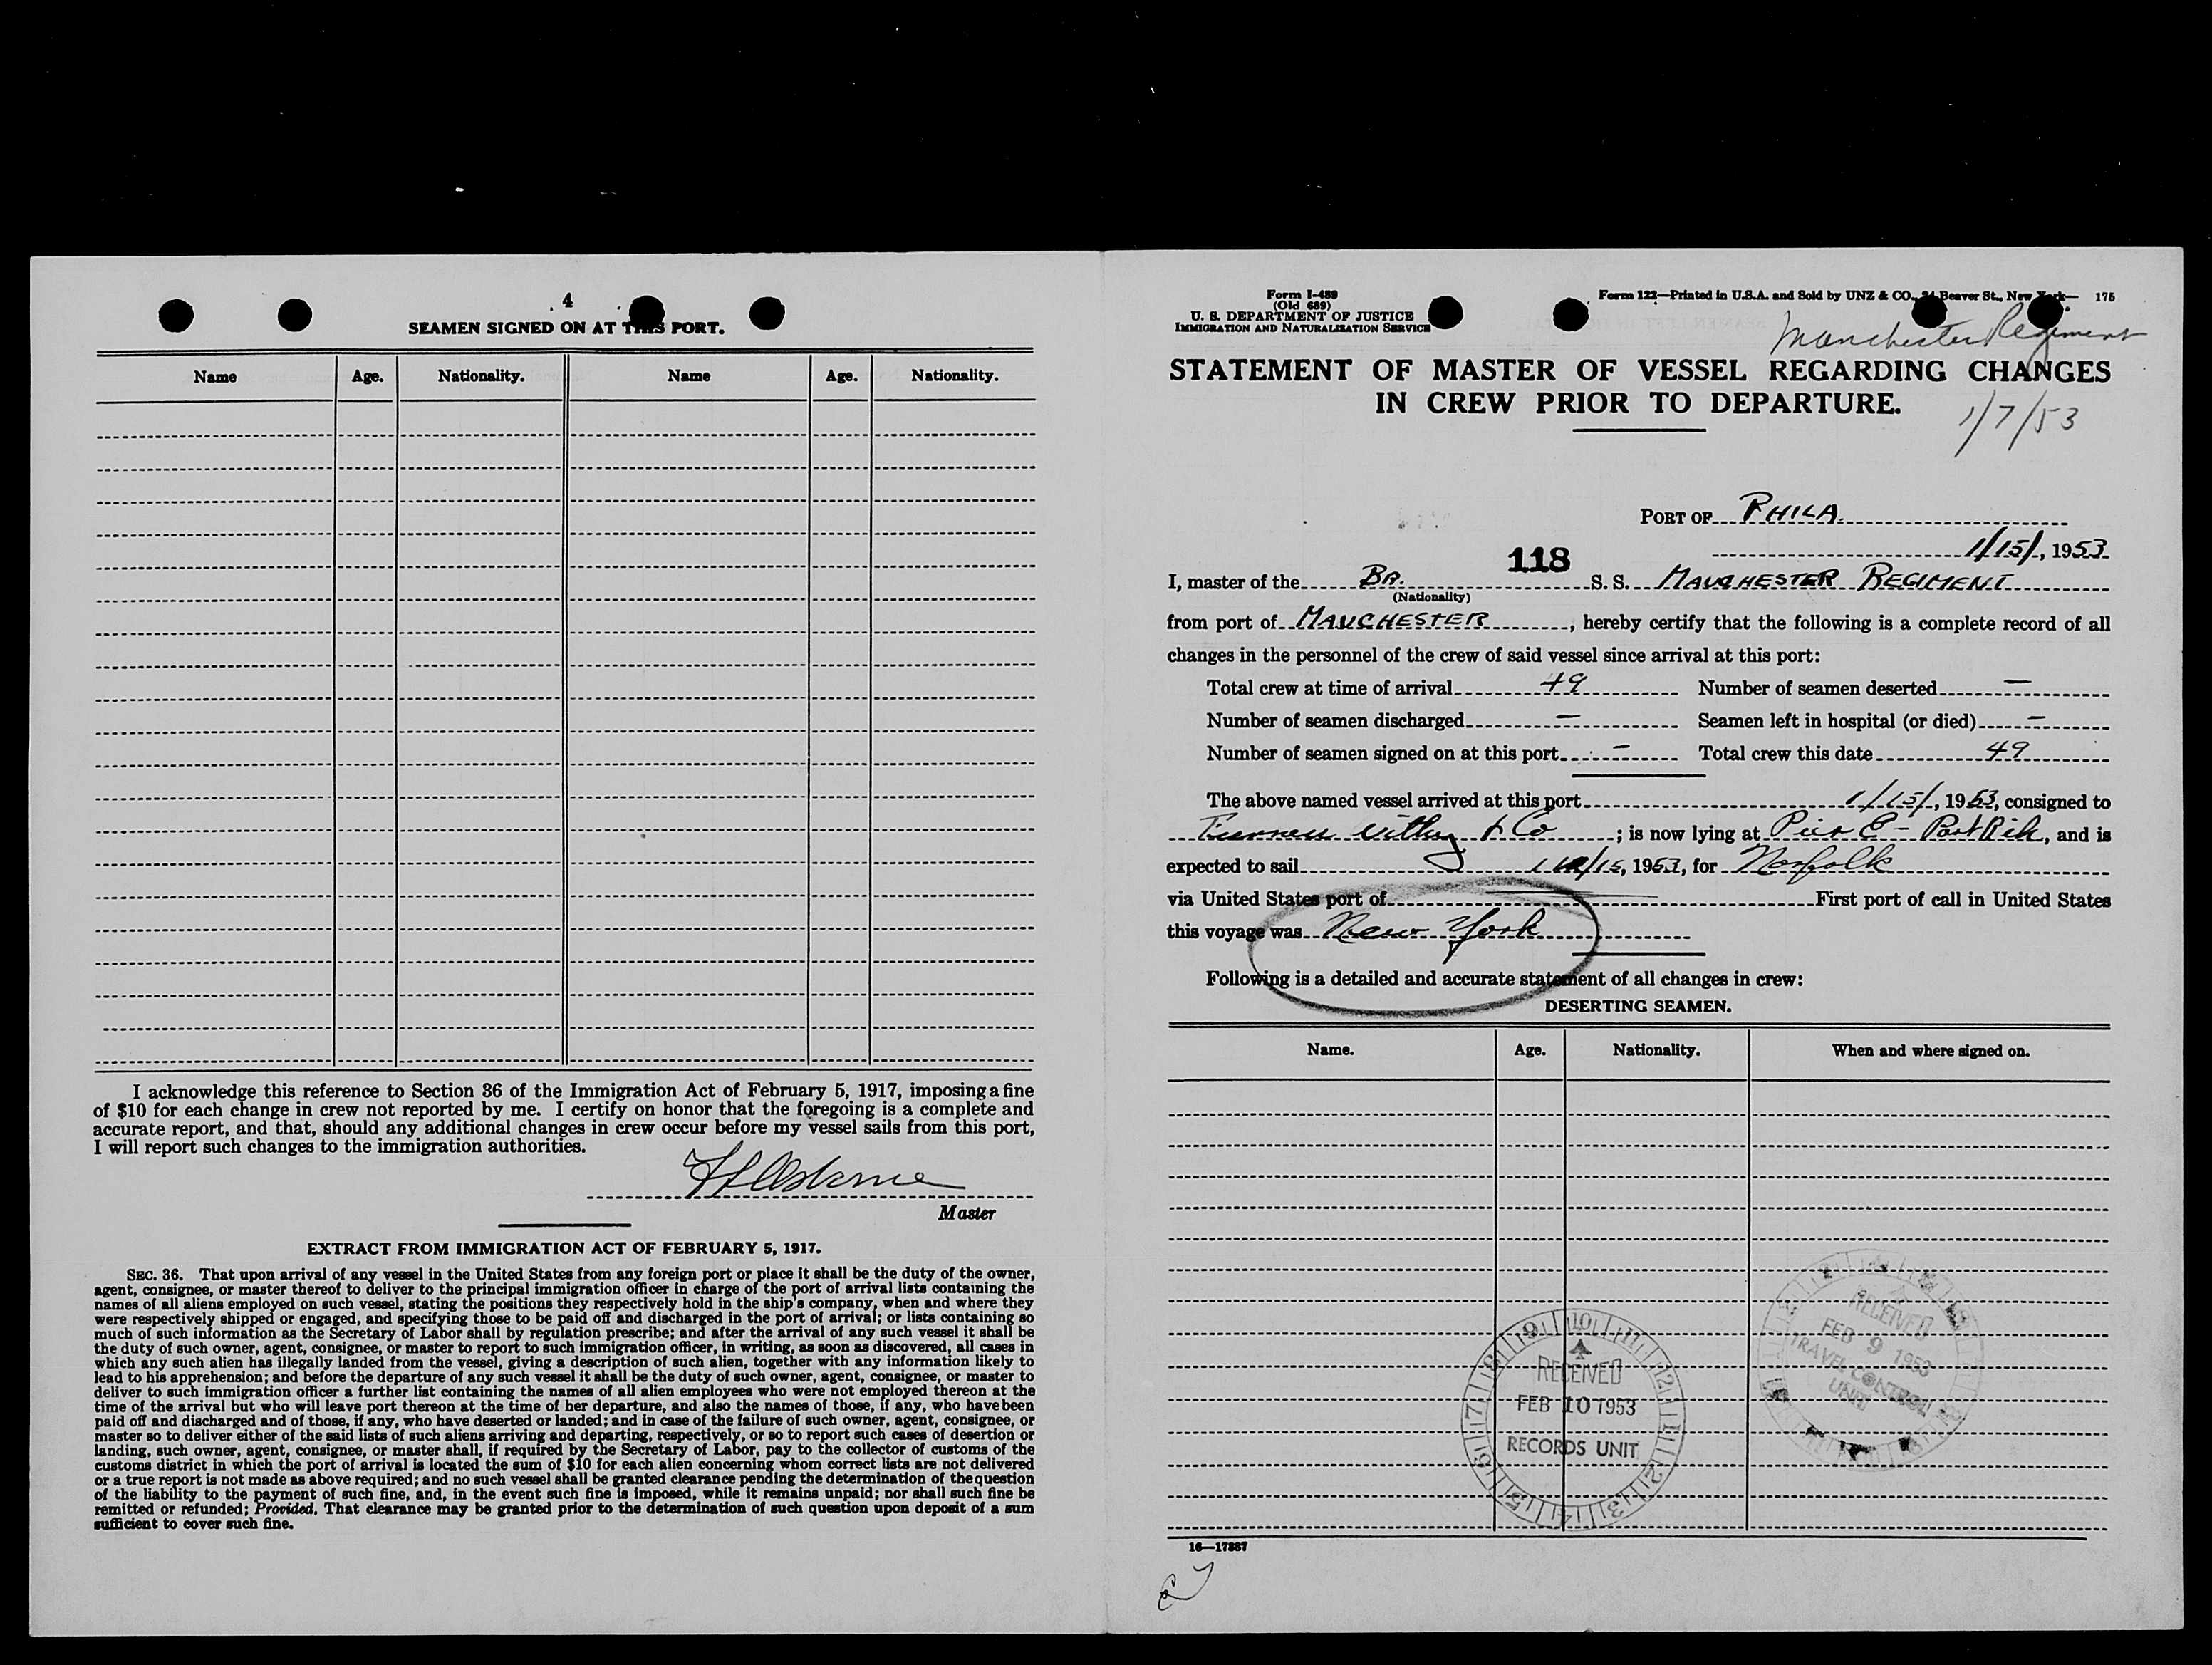 4
SEAMEN SIGNED ON AT THIS PORT.
Name Age. Nationality. Name Age. Nationality.
I acknowledge this reference to Section 36 of the Immigration Act of February 5, 1917, imposing a fine
of $10 for each change in crew not reported by me. I certify on honor that the foregoing is a complete and
accurate report, and that, should any additional changes in crew occur before my vessel sails from this port,
I will report such changes to the immigration authorities.
Master
EXTRACT FROM IMMIGRATION ACT OF FEBRUARY 5, 1917.
SEC. 36. That upon arrival of any vessel in the United States from any foreign port or place it shall be the duty of the owner,
agent, consignee, or master thereof to deliver to the principal immigration officer in charge of the port of arrival lists containing the
names of all aliens employed on such vessel, stating the positions they respectively hold in the ship's company, when and where they
were respectively shipped or engaged, and specifying those to be paid off and discharged in the port of arrival; or lists containing so
much of such information as the Secretary of Labor shall by regulation prescribe; and after the arrival of any such vessel it shall be
the duty of such owner, agent, consignee, or master to report to such immigration officer, in writing, as soon as discovered, all cases in
which any such alien has illegally landed from the vessel, giving a description of such alien, together with any information likely to
lead to his apprehension; and before the departure of any such vessel it shall be the duty of such owner, agent, consignee, or master to
deliver to such immigration officer a further list containing the names of all alien employees who were not employed thereon at the
time of the arrival but who will leave port thereon at the time of her departure, and also the names of those, if any, who have been
paid off and discharged and of those, if any, who have deserted or landed; and in case of the failure of such owner, agent, consignee, or
master so to deliver either of the said lists of such aliens arriving and departing, respectively, or so to report such cases of desertion or
landing, such owner, agent, consignee, or master shall, if required by the Secretary of Labor, pay to the collector of customs of the
customs district in which the port of arrival is located the sum of $10 for each alien concerning whom correct lists are not delivered
or a true report is not made as above required; and no such vessel shall be granted clearance pending the determination of the question
of the liability to the payment of such fine, and, in the event such fine is imposed, while it remains unpaid; nor shall such fine be
remitted or refunded; Provided, That clearance may be granted prior to the determination of such question upon deposit of a sum
sufficient to cover such fine.
Form I-489
(Old 689)
U. S. DEPARTMENT OF JUSTICE
IMMIGRATION AND NATURALIZATION SERVICE
Form 122—Printed in U.S.A. and Sold by UNZ & CO., 24 Beaver St., New York— 175
Manchester Regiment
STATEMENT OF MASTER OF VESSEL REGARDING CHANGES
IN CREW PRIOR TO DEPARTURE.
1/7/53
PORT OF PHILA.
1/15/, 1953
118
I, master of the BR. S. S. MANCHESTER REGIMENT
(Nationality)
from port of MANCHESTER, hereby certify that the following is a complete record of all
changes in the personnel of the crew of said vessel since arrival at this port:
Total crew at time of arrival 49 Number of seamen deserted —
Number of seamen discharged — Seamen left in hospital (or died) —
Number of seamen signed on at this port — Total crew this date 49
The above named vessel arrived at this port 1/15/, 1953, consigned to
& Co; is now lying at Pier C - Port Rich, and is
expected to sail 1/15, 1953, for Norfolk
via United States port of First port of call in United States
this voyage was New York
Following is a detailed and accurate statement of all changes in crew:
DESERTING SEAMEN.
Name. Age. Nationality. When and where signed on.
RECEIVED
FEB 9 1953
TRAVEL CONTROL
UNIT
9 10 11 12 1 2 3 4 5 6 7 8
RECEIVED
FEB 10 1953
RECORDS UNIT
16—17887